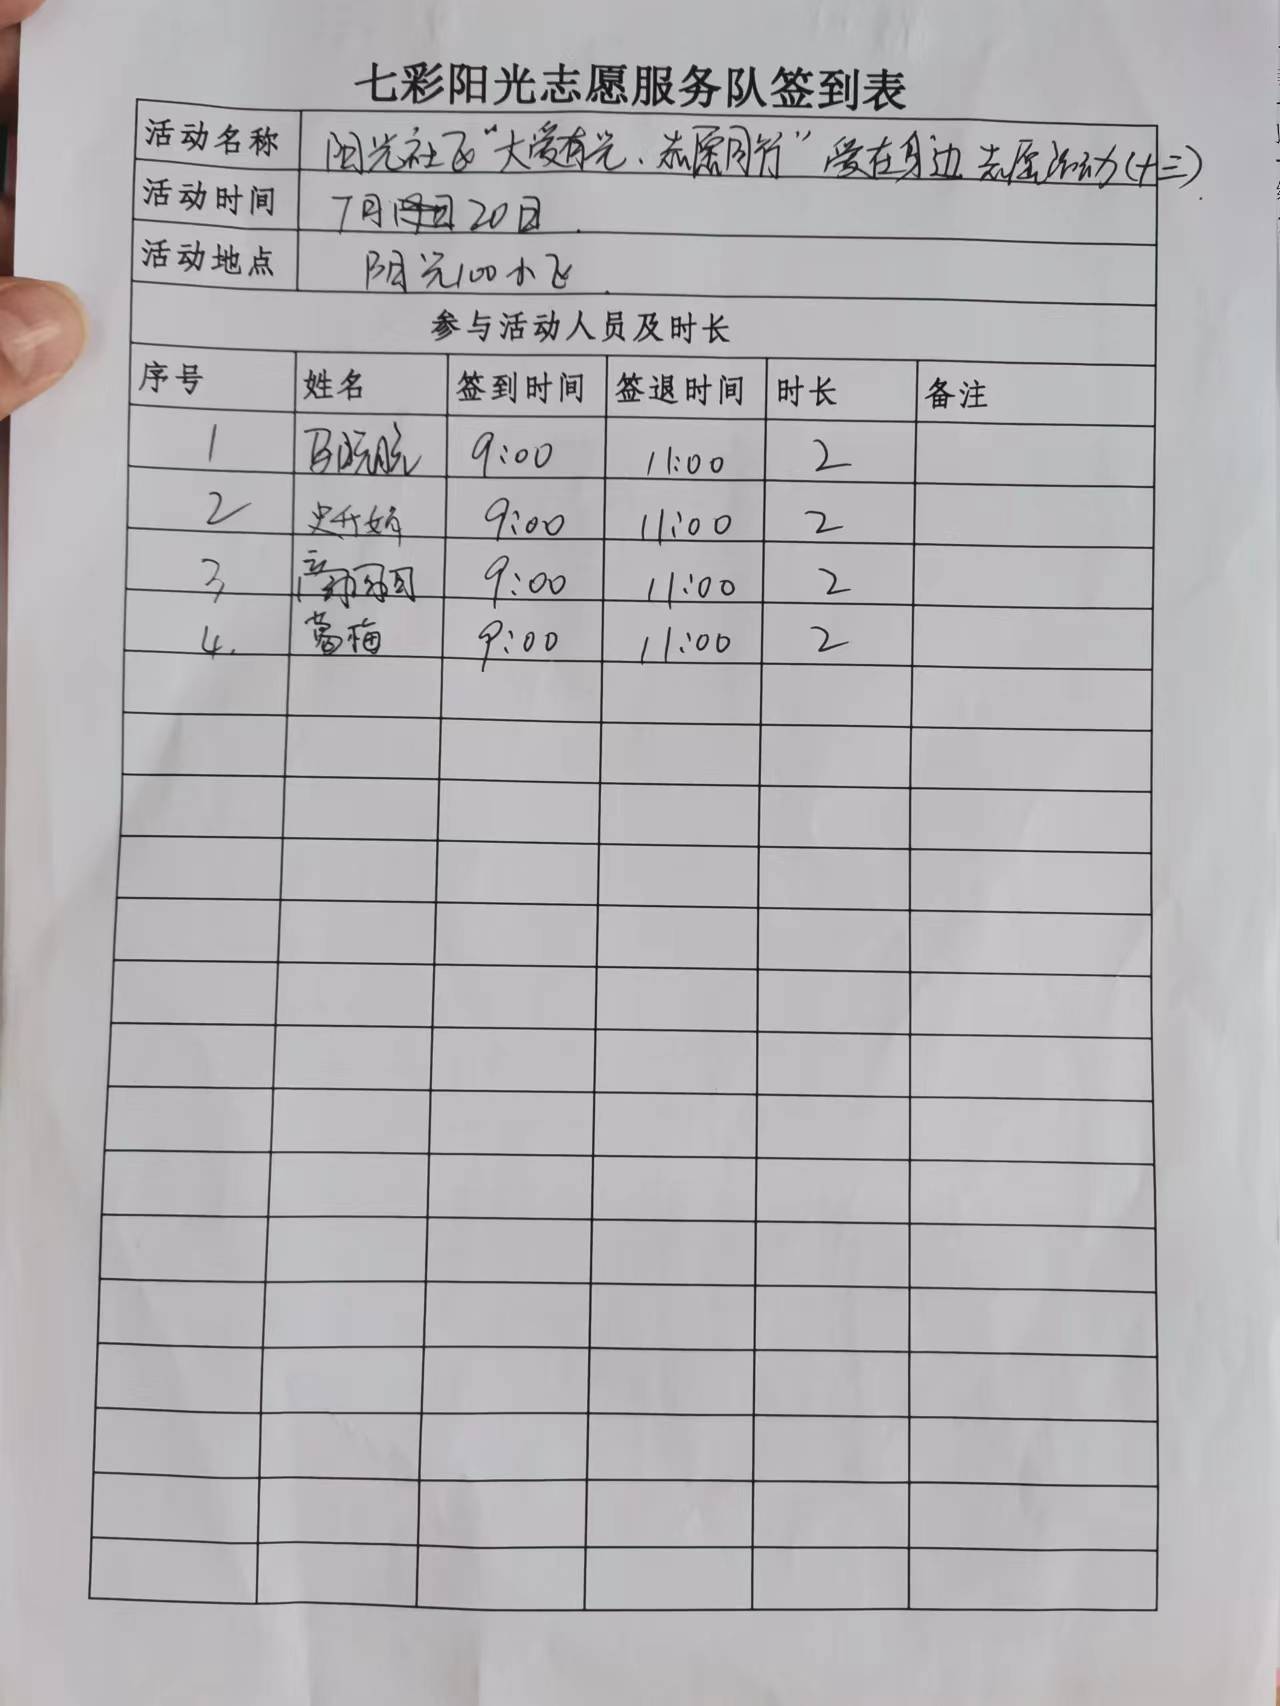 七彩阳光志愿服务队签到表
活动名称 阳光社区“大爱有光、志愿同行”爱在身边 志愿活动(十三)
活动时间 7月20日
活动地点 阳光100小区
参与活动人员及时长
序号 姓名 签到时间 签退时间 时长 备注
1 9:00 11:00 2
2 9:00 11:00 2
3 9:00 11:00 2
4. 葛梅 9:00 11:00 2